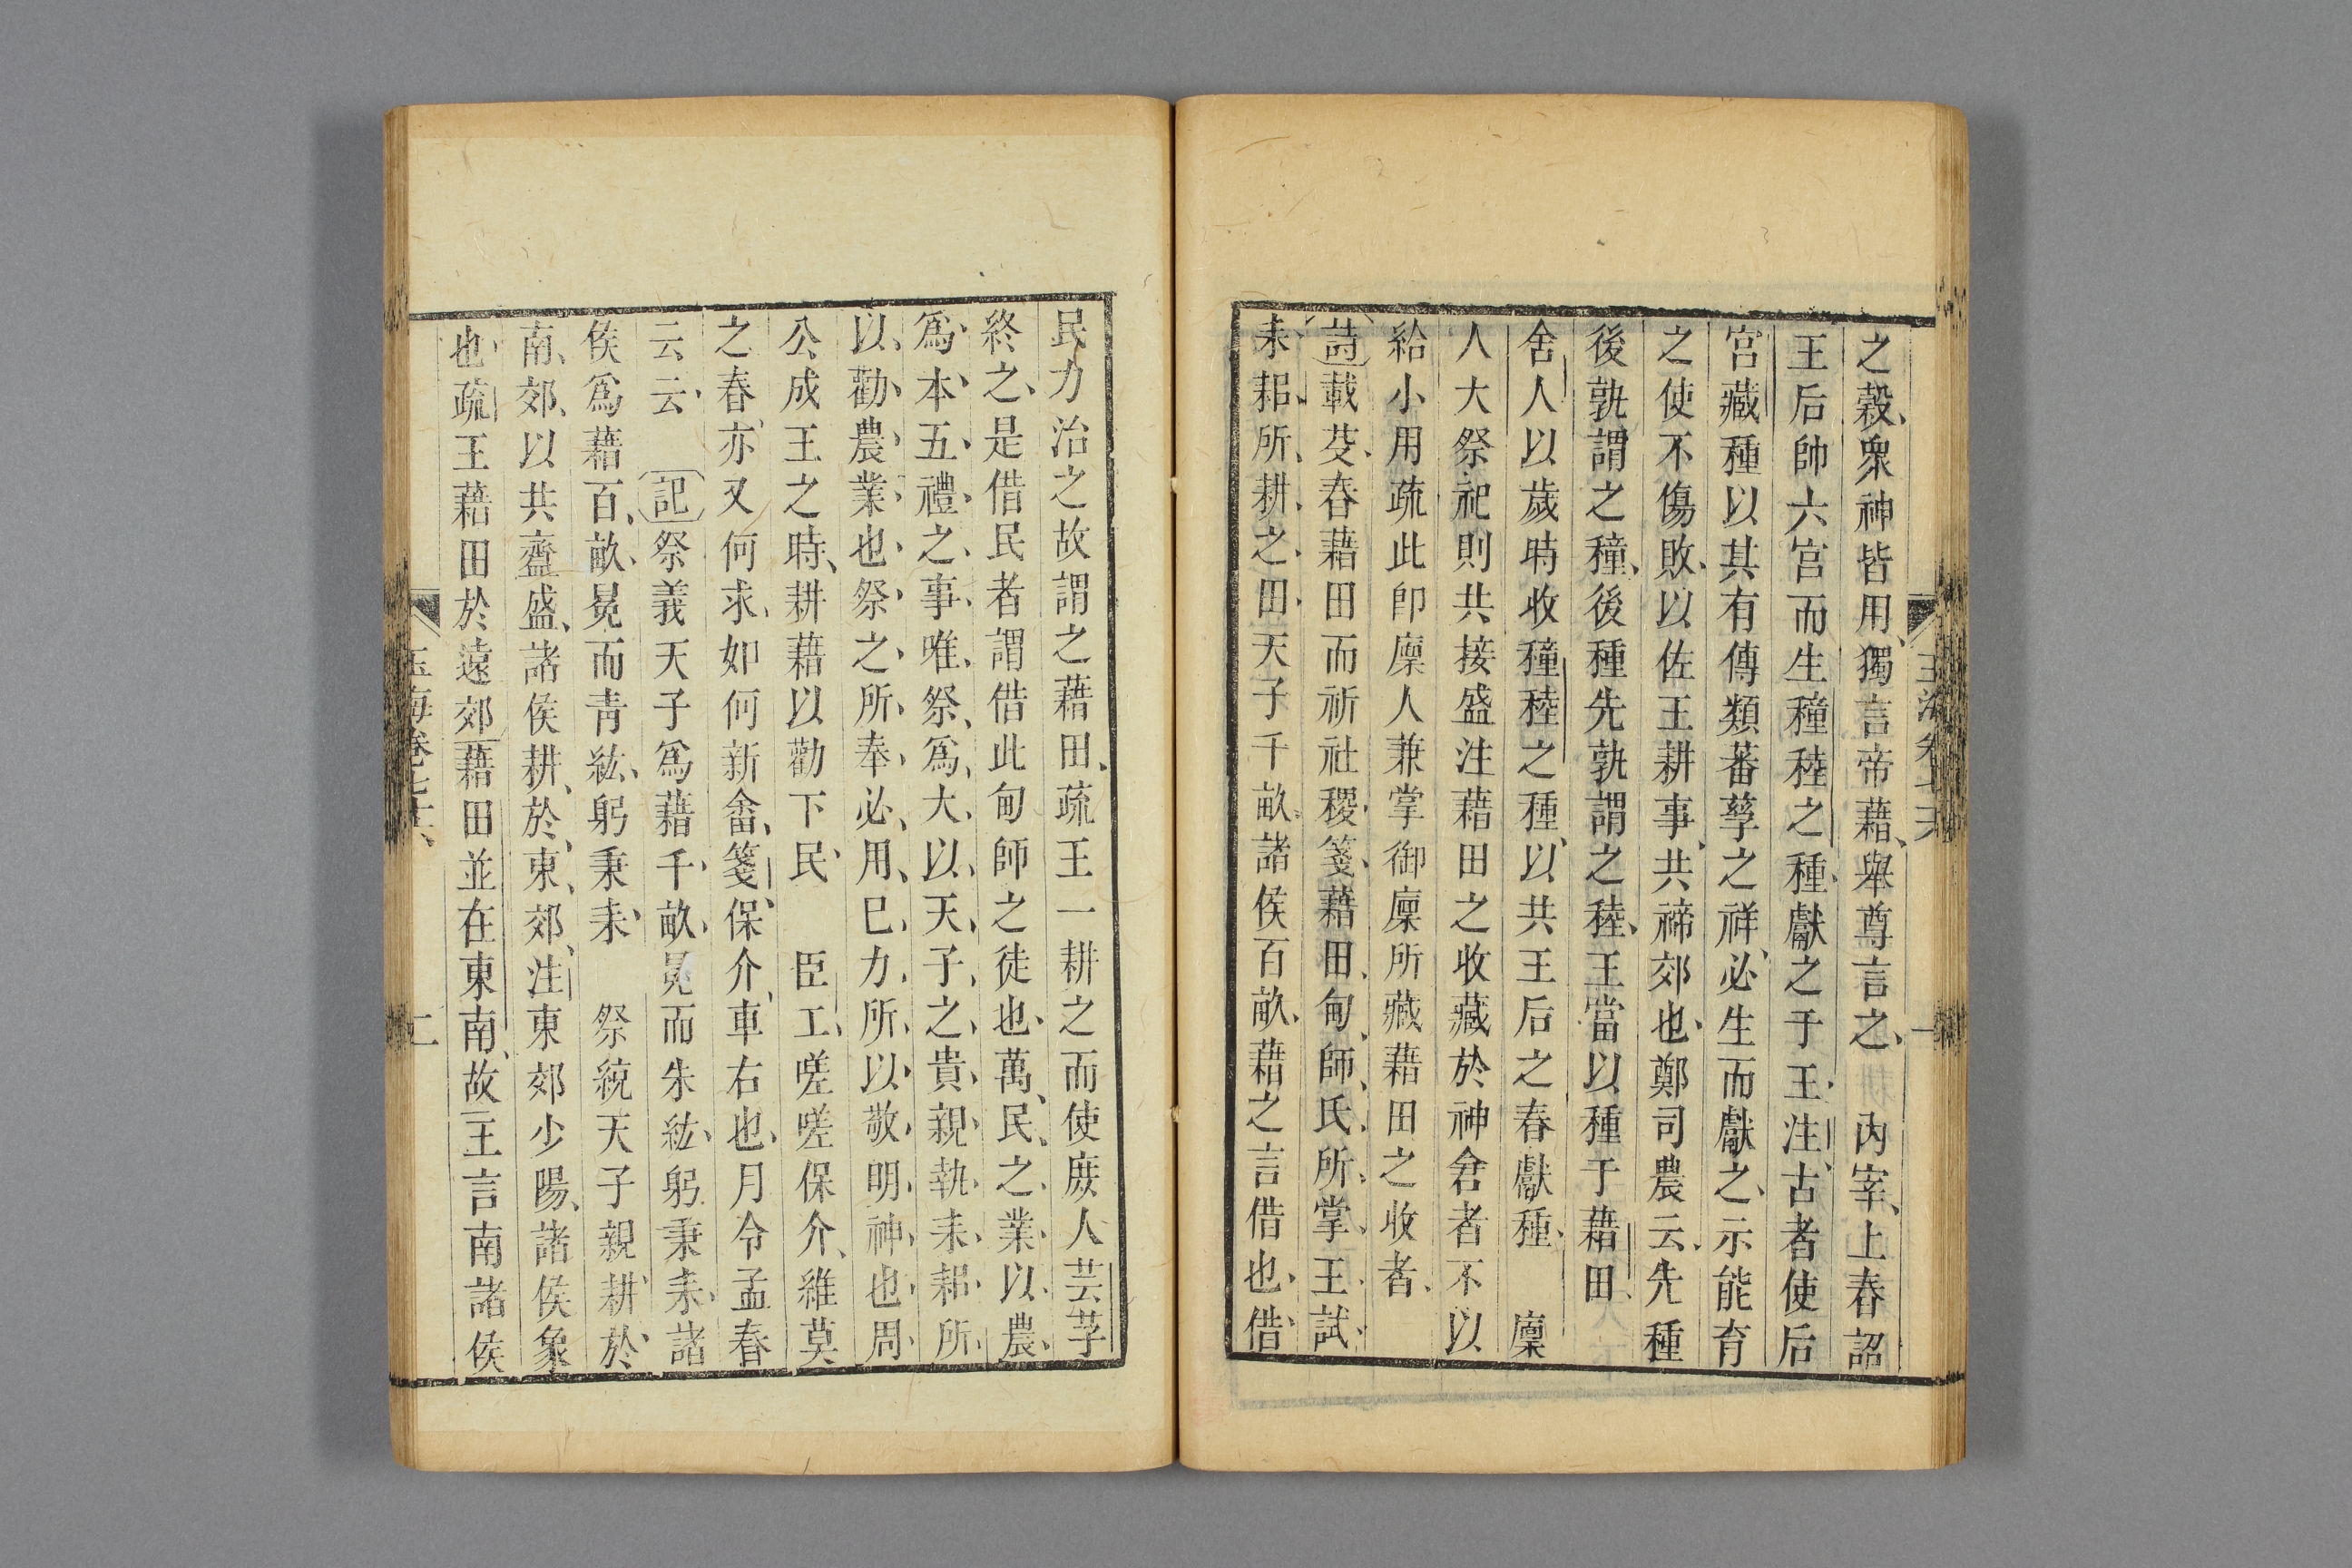 之榖衆神皆用獨言帝藉舉尊言之　內宰上春詔
王后帥六宮而生穜稑之種獻之于王注古者使后
宮藏種以其有傳類蕃孳之祥必生而獻之示能育
之使不傷敗以佐王耕事共禘郊也鄭司農云先種
後孰謂之穜後種先孰謂之稑王當以種于藉田
舍人以歲時收穜稑之種以共王后之春獻種　廩
人大祭祀則共接盛注藉田之收藏於神倉者不以
給小用疏此卽廩人兼掌御廩所藏藉田之收者
詩載芟春藉田而祈社稷箋藉田甸師氏所掌王試
耒耜所耕之田天子千畝諸侯百畝藉之言借也借
民力治之故謂之藉田疏王一耕之而使庻人芸芓
終之是借民者謂借此甸師之徒也萬民之業以農
爲本五禮之事唯祭爲大以天子之貴親執耒耜所
以勸農業也祭之所奉必用巳力所以敬明神也周
公成王之時耕藉以勸下民　臣工嗟嗟保介維莫
之春亦又何求如何新畬箋保介車右也月令孟春
云云　記祭義天子爲藉千畝冕而朱紘躬秉耒諸
侯爲藉百畝冕而靑紘躬秉耒　祭統天子親耕於
南郊以共齍盛諸侯耕於東郊注東郊少陽諸侯象
也疏王藉田於遠郊藉田並在東南故王言南諸侯
玉海卷七十六　二